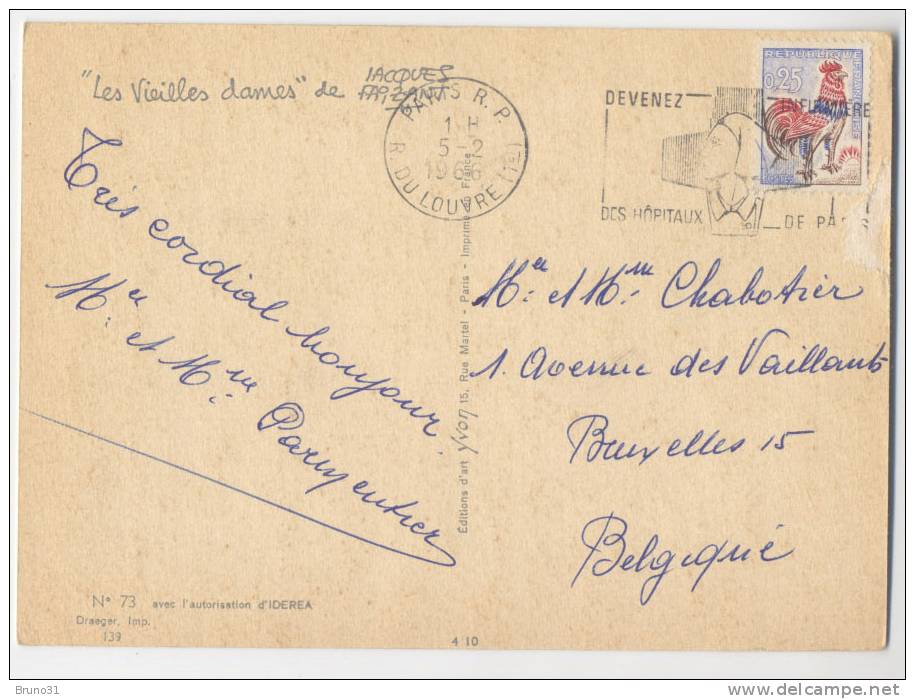 "Les Vieilles dames" de JACQUES FAIZANT
PARIS R.P.
5-2
1966
R. DU LOUVRE (1er)
DEVENEZ INFIRMIÈRE
DES HÔPITAUX DE PARIS
REPUBLIQUE FRANÇAISE
0,25
POSTES
Très cordial bonjour
Me et Mme Parmentier
Me et Mme Chabotier
1. Avenue des Vaillants
Bruxelles 15
Belgique
Éditions d'art yvon 15, Rue Martel - Paris - Imprimé en France
N° 73 avec l'autorisation d'IDEREA
Draeger, Imp.
139
4 10
Bruno31
www.delcampe.net